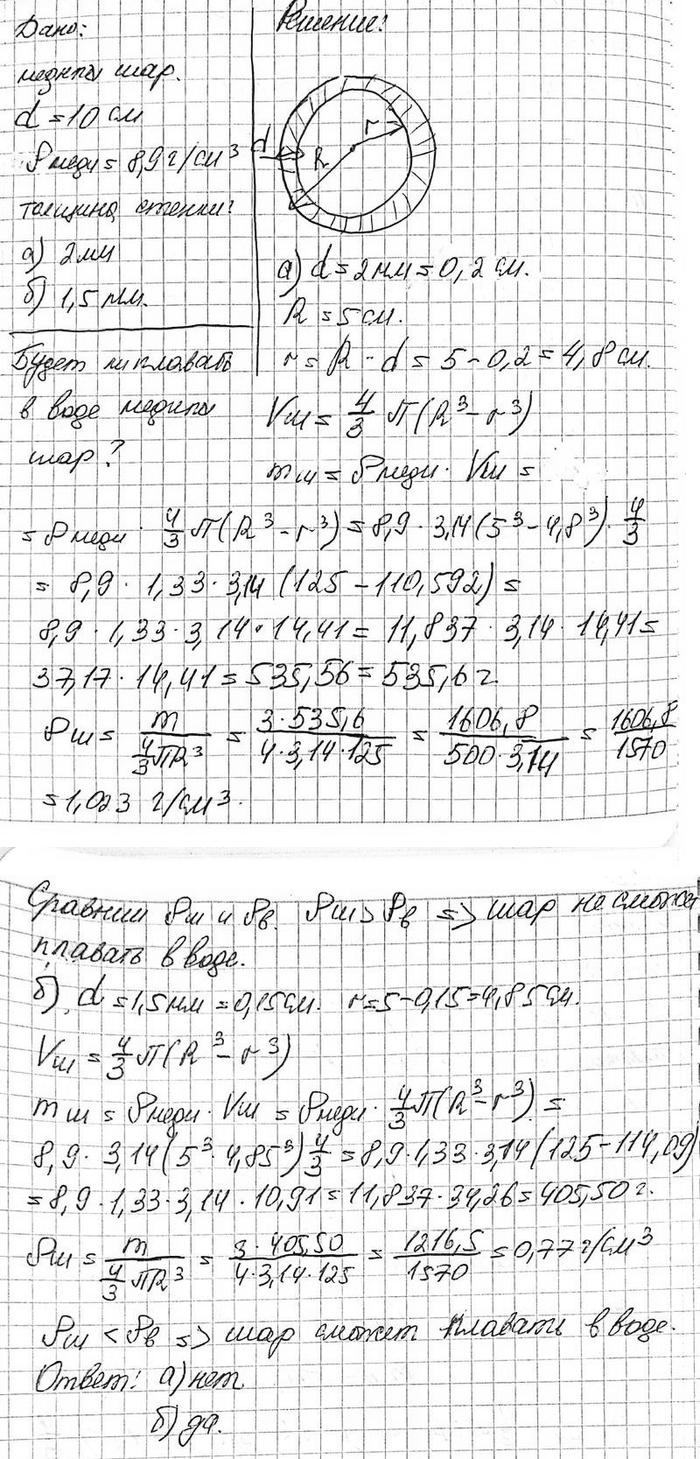 Дано:
медный шар.
d = 10 см
ρмеди = 8,9 г/см³
толщина стенки:
а) 2 мм
б) 1,5 мм.
Будет ли плавать
в воде медный
шар?
Решение:
d
r
R
а) d = 2 мм = 0,2 см.
R = 5 см.
r = R - d = 5 - 0,2 = 4,8 см.
Vш = 4/3 π(R³ - r³)
mш = ρмеди · Vш =
= ρмеди · 4/3 π(R³ - r³) = 8,9 · 3,14(5³ - 4,8³) · 4/3
= 8,9 · 1,33 · 3,14 (125 - 110,592) =
8,9 · 1,33 · 3,14 · 14,41 = 11,837 · 3,14 · 14,41 =
37,17 · 14,41 = 535,56 = 535,6 г.
ρш = m / (4/3 πR³) = 3·535,6 / (4·3,14·125) = 1606,8 / (500·3,14) = 1606,8 / 1570
= 1,023 г/см³.
Сравним ρш и ρв. ρш > ρв => шар не сможет
плавать в воде.
б). d = 1,5 мм = 0,15 см. r = 5 - 0,15 = 4,85 см.
Vш = 4/3 π(R³ - r³)
mш = ρмеди · Vш = ρмеди · 4/3 π(R³ - r³) =
8,9 · 3,14(5³ · 4,85³) 4/3 = 8,9 · 1,33 · 3,14 (125 - 114,09)
= 8,9 · 1,33 · 3,14 · 10,91 = 11,837 · 34,26 = 405,50 г.
ρш = m / (4/3 πR³) = 3·405,50 / (4·3,14·125) = 1216,5 / 1570 = 0,77 г/см³
ρш < ρв => шар сможет плавать в воде.
Ответ: а) нет
б) да.